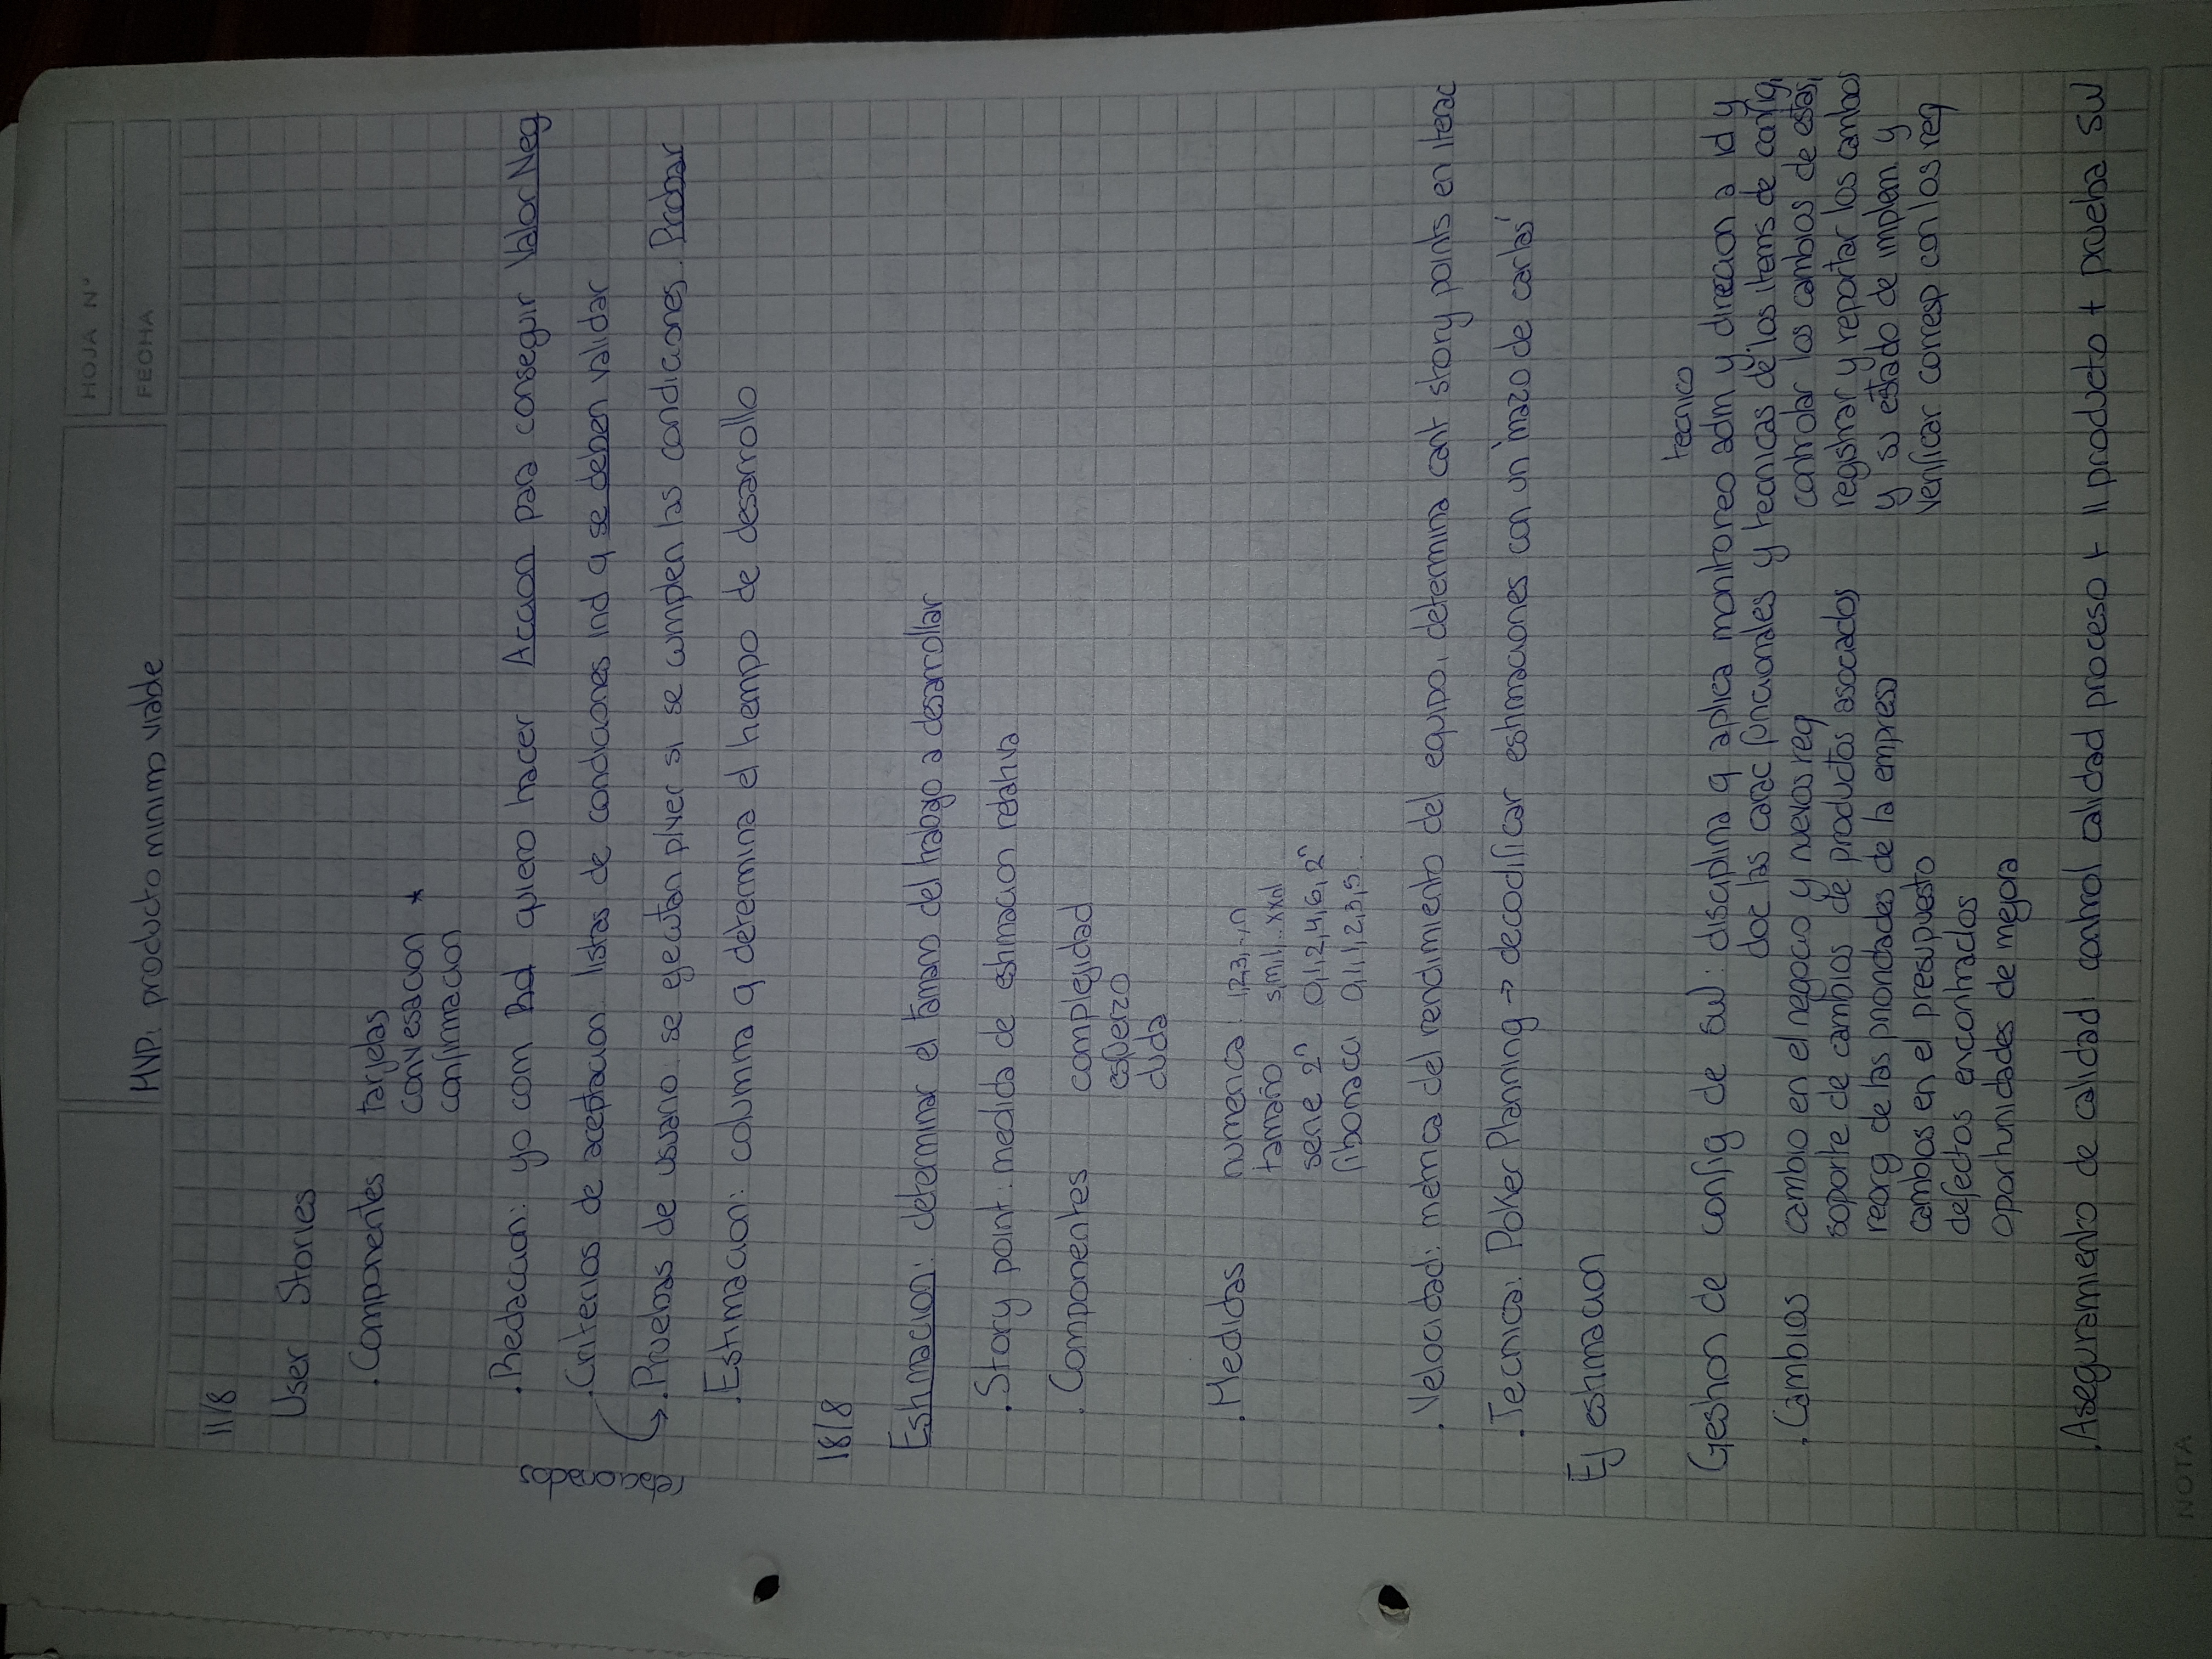 HOJA Nº
FECHA
MVP: producto minimo viable
11/8
User Stories
. Componentes tarjetas
convesacion *
confirmacion
. Redaccion: yo com Rol quiero hacer Accion para conseguir Valor Neg
. Criterios de aceptacion listas de condiciones ind q se deben validar
relacionados
. Pruebas de usuario se ejecutan p/ver si se cumplen las condiciones. Probar
. Estimacion: columna q determina el tiempo de desarrollo
18/8
Estimacion: determinar el tamano del trabajo a desarrollar
. Story point: medida de estimacion relativa
. Componentes complejidad
esfuerzo
duda
. Medidas numerica: 1,2,3,..,n
tamaño s,m,l,..xxnl
serie 2ⁿ 0,1,2,4,6, 2ⁿ
fibonacci 0,1,1,2,3,5..
. Velocidad: metrica del rendimiento del equipo, determina cant story points en iterac
. Tecnica: Poker Planning → decodificar estimaciones con un 'mazo de cartas'
Ej estimacion
tecnico
Geshon de config de sw: disciplina q aplica monitoreo adm y direccion a id y
doc las carac funcionales y tecnicas de los items de config,
. Cambios cambio en el negocio y nuevos req controlar los cambios de estas,
soporte de cambios de productos asociados registrar y reportar los cambios
reorg de las prioridades de la empresa y su estado de implem. y
cambios en el presupuesto verificar corresp con los req
defectos encontrados
oportunidades de mejora
. Aseguramiento de calidad: control calidad proceso + 11 producto + prueba SW
NOTA